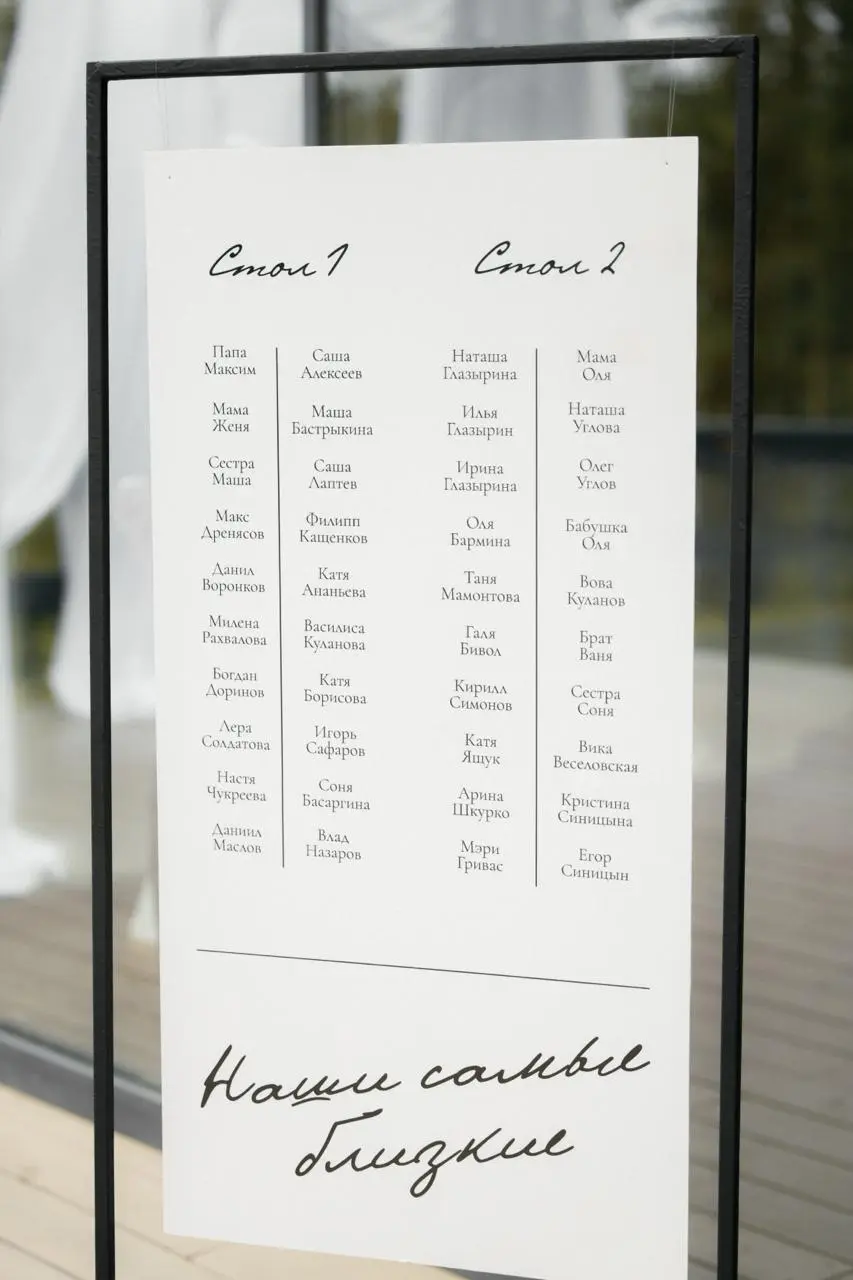 Стол 1
Папа
Максим
Мама
Женя
Сестра
Маша
Макс
Дренясов
Данил
Воронков
Милена
Рахвалова
Богдан
Доринов
Лера
Солдатова
Настя
Чукреева
Даниил
Маслов
Саша
Алексеев
Маша
Бастрыкина
Саша
Лаптев
Филипп
Кащенков
Катя
Ананьева
Василиса
Куланова
Катя
Борисова
Игорь
Сафаров
Соня
Басаргина
Влад
Назаров
Стол 2
Наташа
Глазырина
Илья
Глазырин
Ирина
Глазырина
Оля
Бармина
Таня
Мамонтова
Галя
Бивол
Кирилл
Симонов
Катя
Ящук
Арина
Шкурко
Мэри
Гривас
Мама
Оля
Наташа
Углова
Олег
Углов
Бабушка
Оля
Вова
Куланов
Брат
Ваня
Сестра
Соня
Вика
Веселовская
Кристина
Синицына
Егор
Синицын
Наши самые
близкие